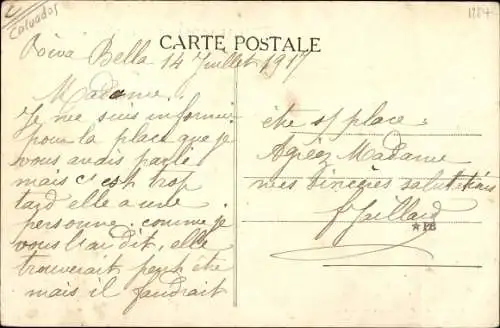 Calvados
1284
CARTE POSTALE
Riva Bella 14 Juillet 1917
Madame.
Je me suis informer
pour la place que je
vous audis parlé
mais c'est trop
tard elle a une
personne. comme je
vous l'ai dit, elle
trouverait peut être
mais il faudrait
être sf place.
Agréez Madame
mes sincères salutations
f Gaillard
★PB